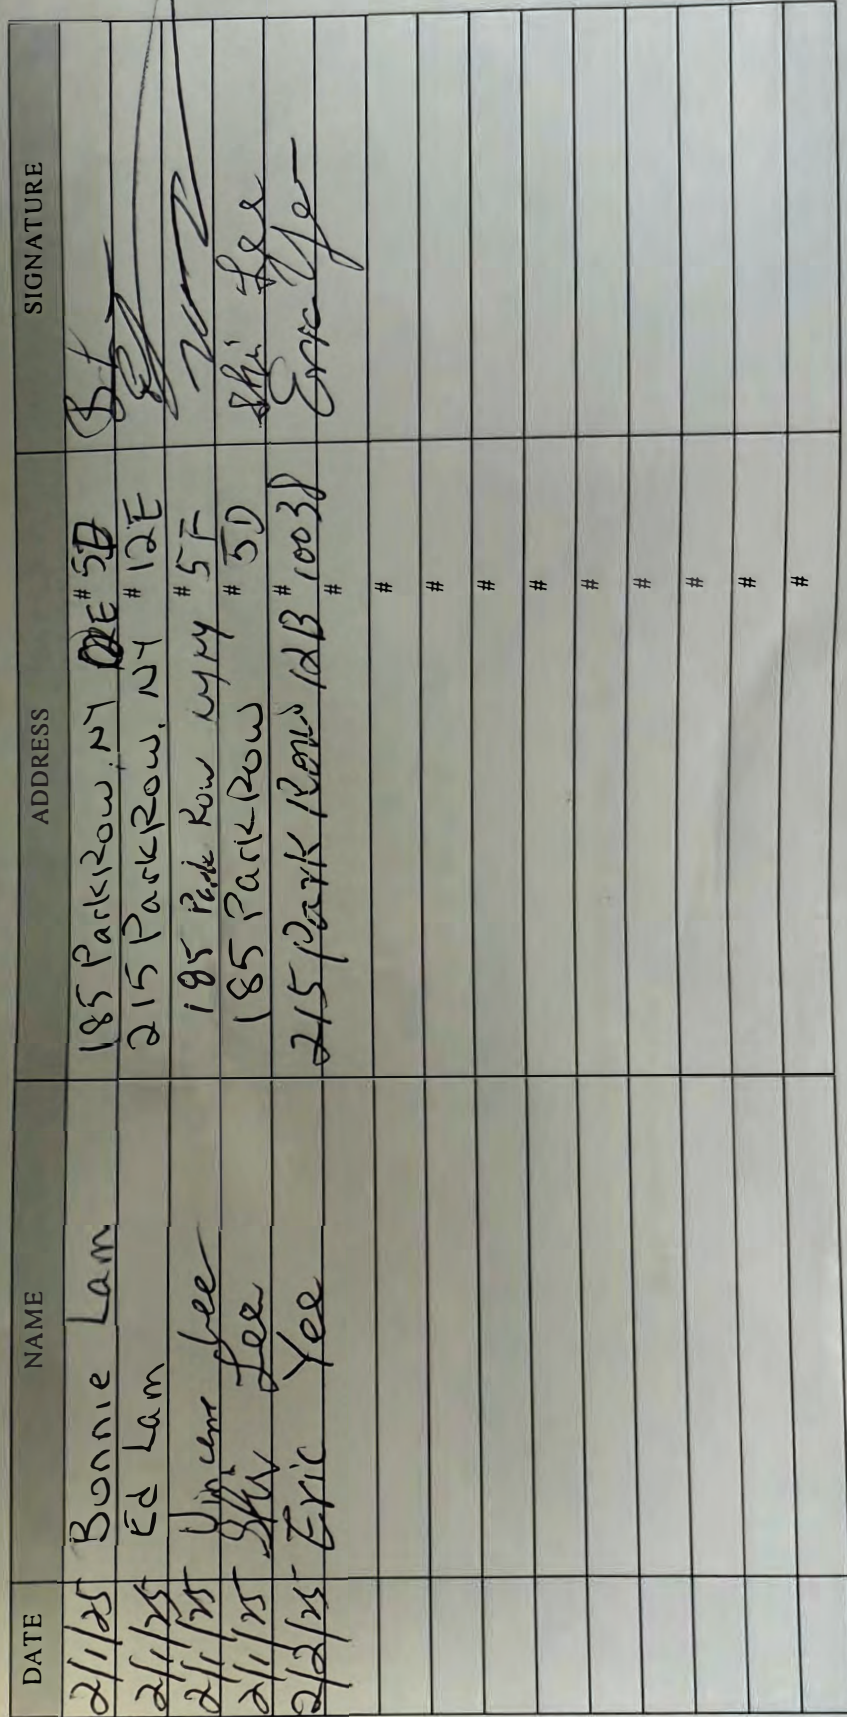 DATE NAME ADDRESS SIGNATURE
2/1/25 Bonnie Lam 185 Park Row, NY #
2/1/25 Ed Lam 215 Park Row, NY # 12E
2/1/25 Vincent Lee 185 Park Row NY NY # 5F
2/1/25 Shiu Lee 185 Park Row # 5D Shiu Lee
2/2/25 Eric Yee 215 Park Row 12B # 10038 Eric Yee
#
#
#
#
#
#
#
#
#
#